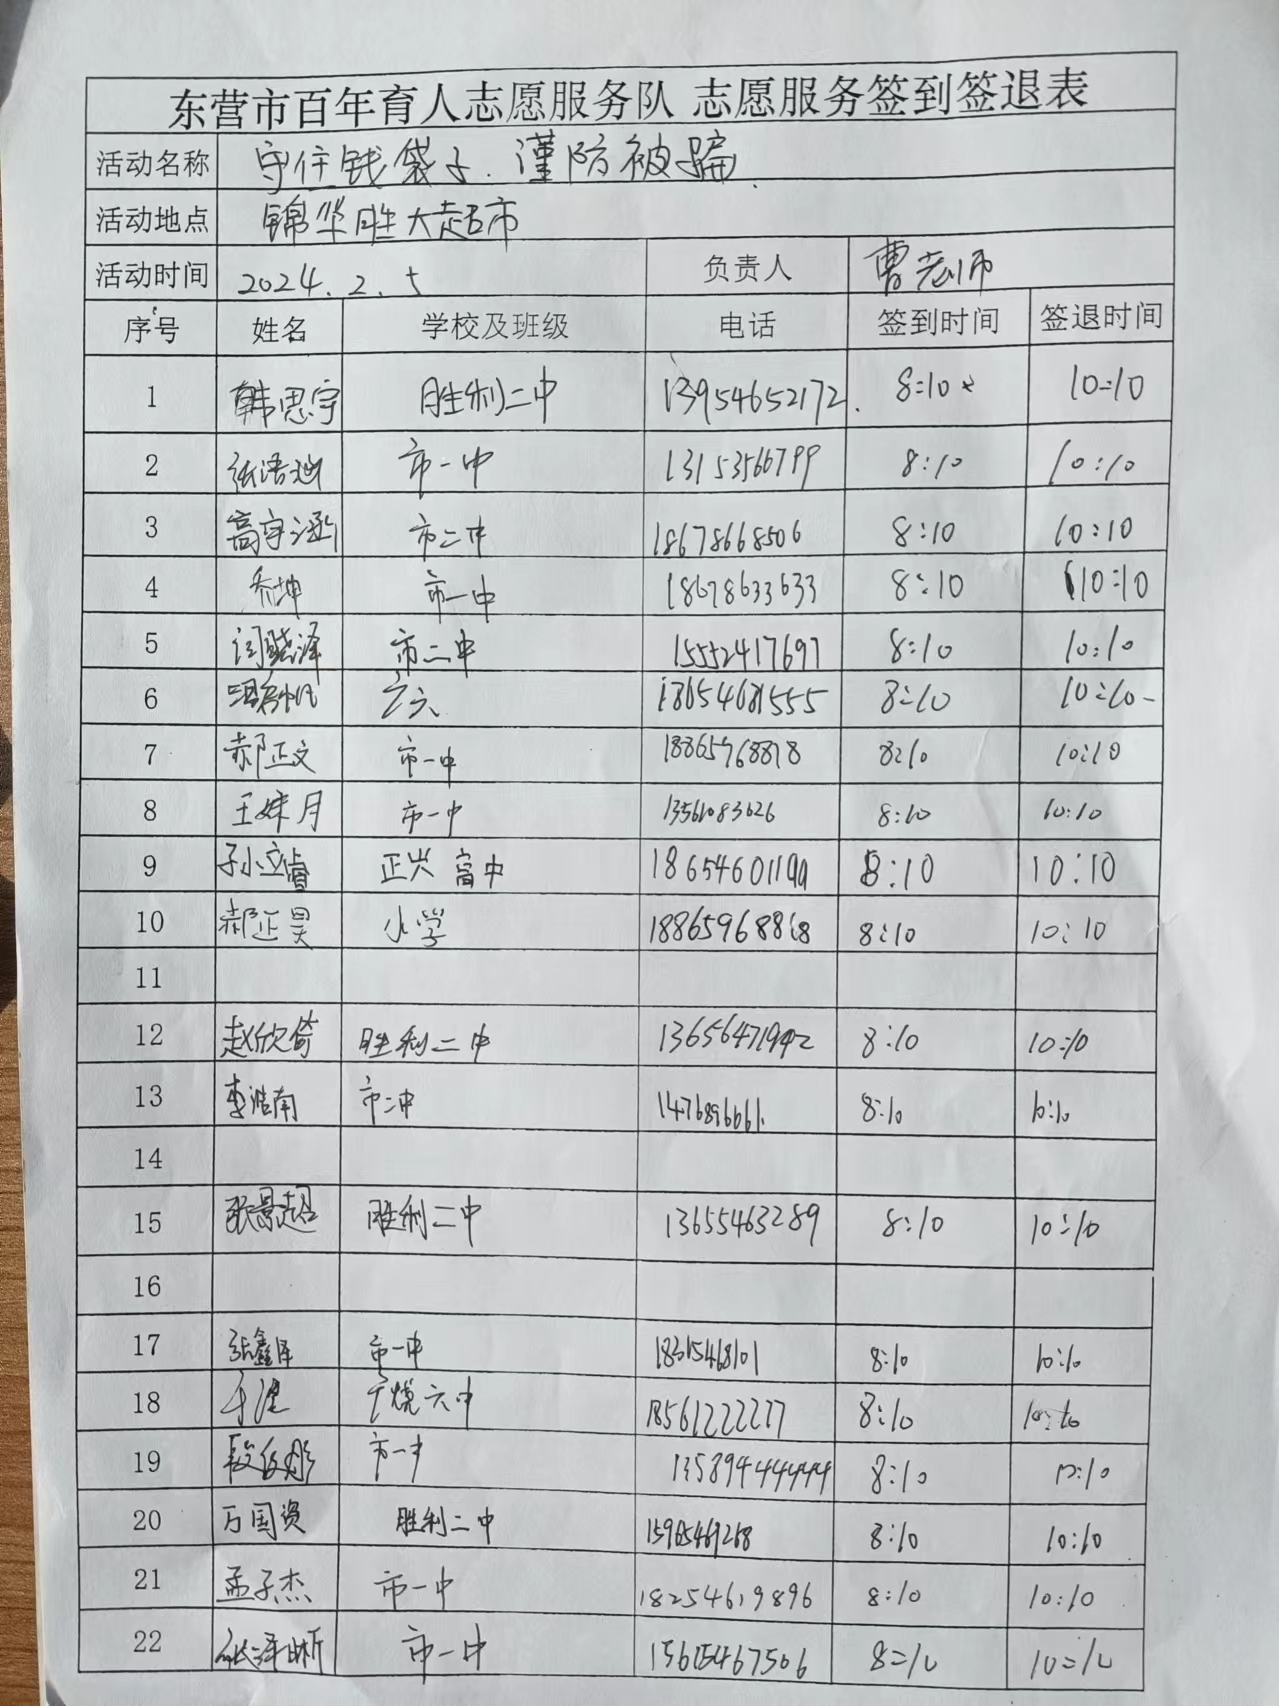 东营市百年育人志愿服务队 志愿服务签到签退表
活动名称 守住钱袋子.谨防被骗.
活动地点 锦华胜大超市
活动时间 2024.2.5 负责人 曹老师
序号 姓名 学校及班级 电话 签到时间 签退时间
1 韩思宇 胜利二中 13954652172. 8:10 10:10
2 市一中 13153566799 8:10 10:10
3 高宇涵 市二中 18678668506 8:10 10:10
4 乔坤 市一中 18678633633 8:10 10:10
5 闫晓泽 市二中 15552417697 8:10 10:10
6 18654681555 8:10 10:10
7 郝正文 市一中 18865968818 8:10 10:10
8 王姝月 市一中 13561083626 8:10 10:10
9 孙立睿 正兴高中 18654601199 8:10 10:10
10 郝正昊 小学 18865968818 8:10 10:10
11
12 赵欣倚 胜利二中 13656471942 8:10 10:10
13 李浩南 市二中 1476896061. 8:10 10:10
14
15 张景超 胜利二中 13655463289 8:10 10:10
16
17 张鑫泽 市一中 18315468101 8:10 10:10
18 六中 18561222277 8:10 10:10
19 市一中 13589444444 8:10 10:10
20 万国资 胜利二中 15965469268 8:10 10:10
21 孟子杰 市一中 18254619896 8:10 10:10
22 张泽昕 市一中 15615467506 8:10 10:10